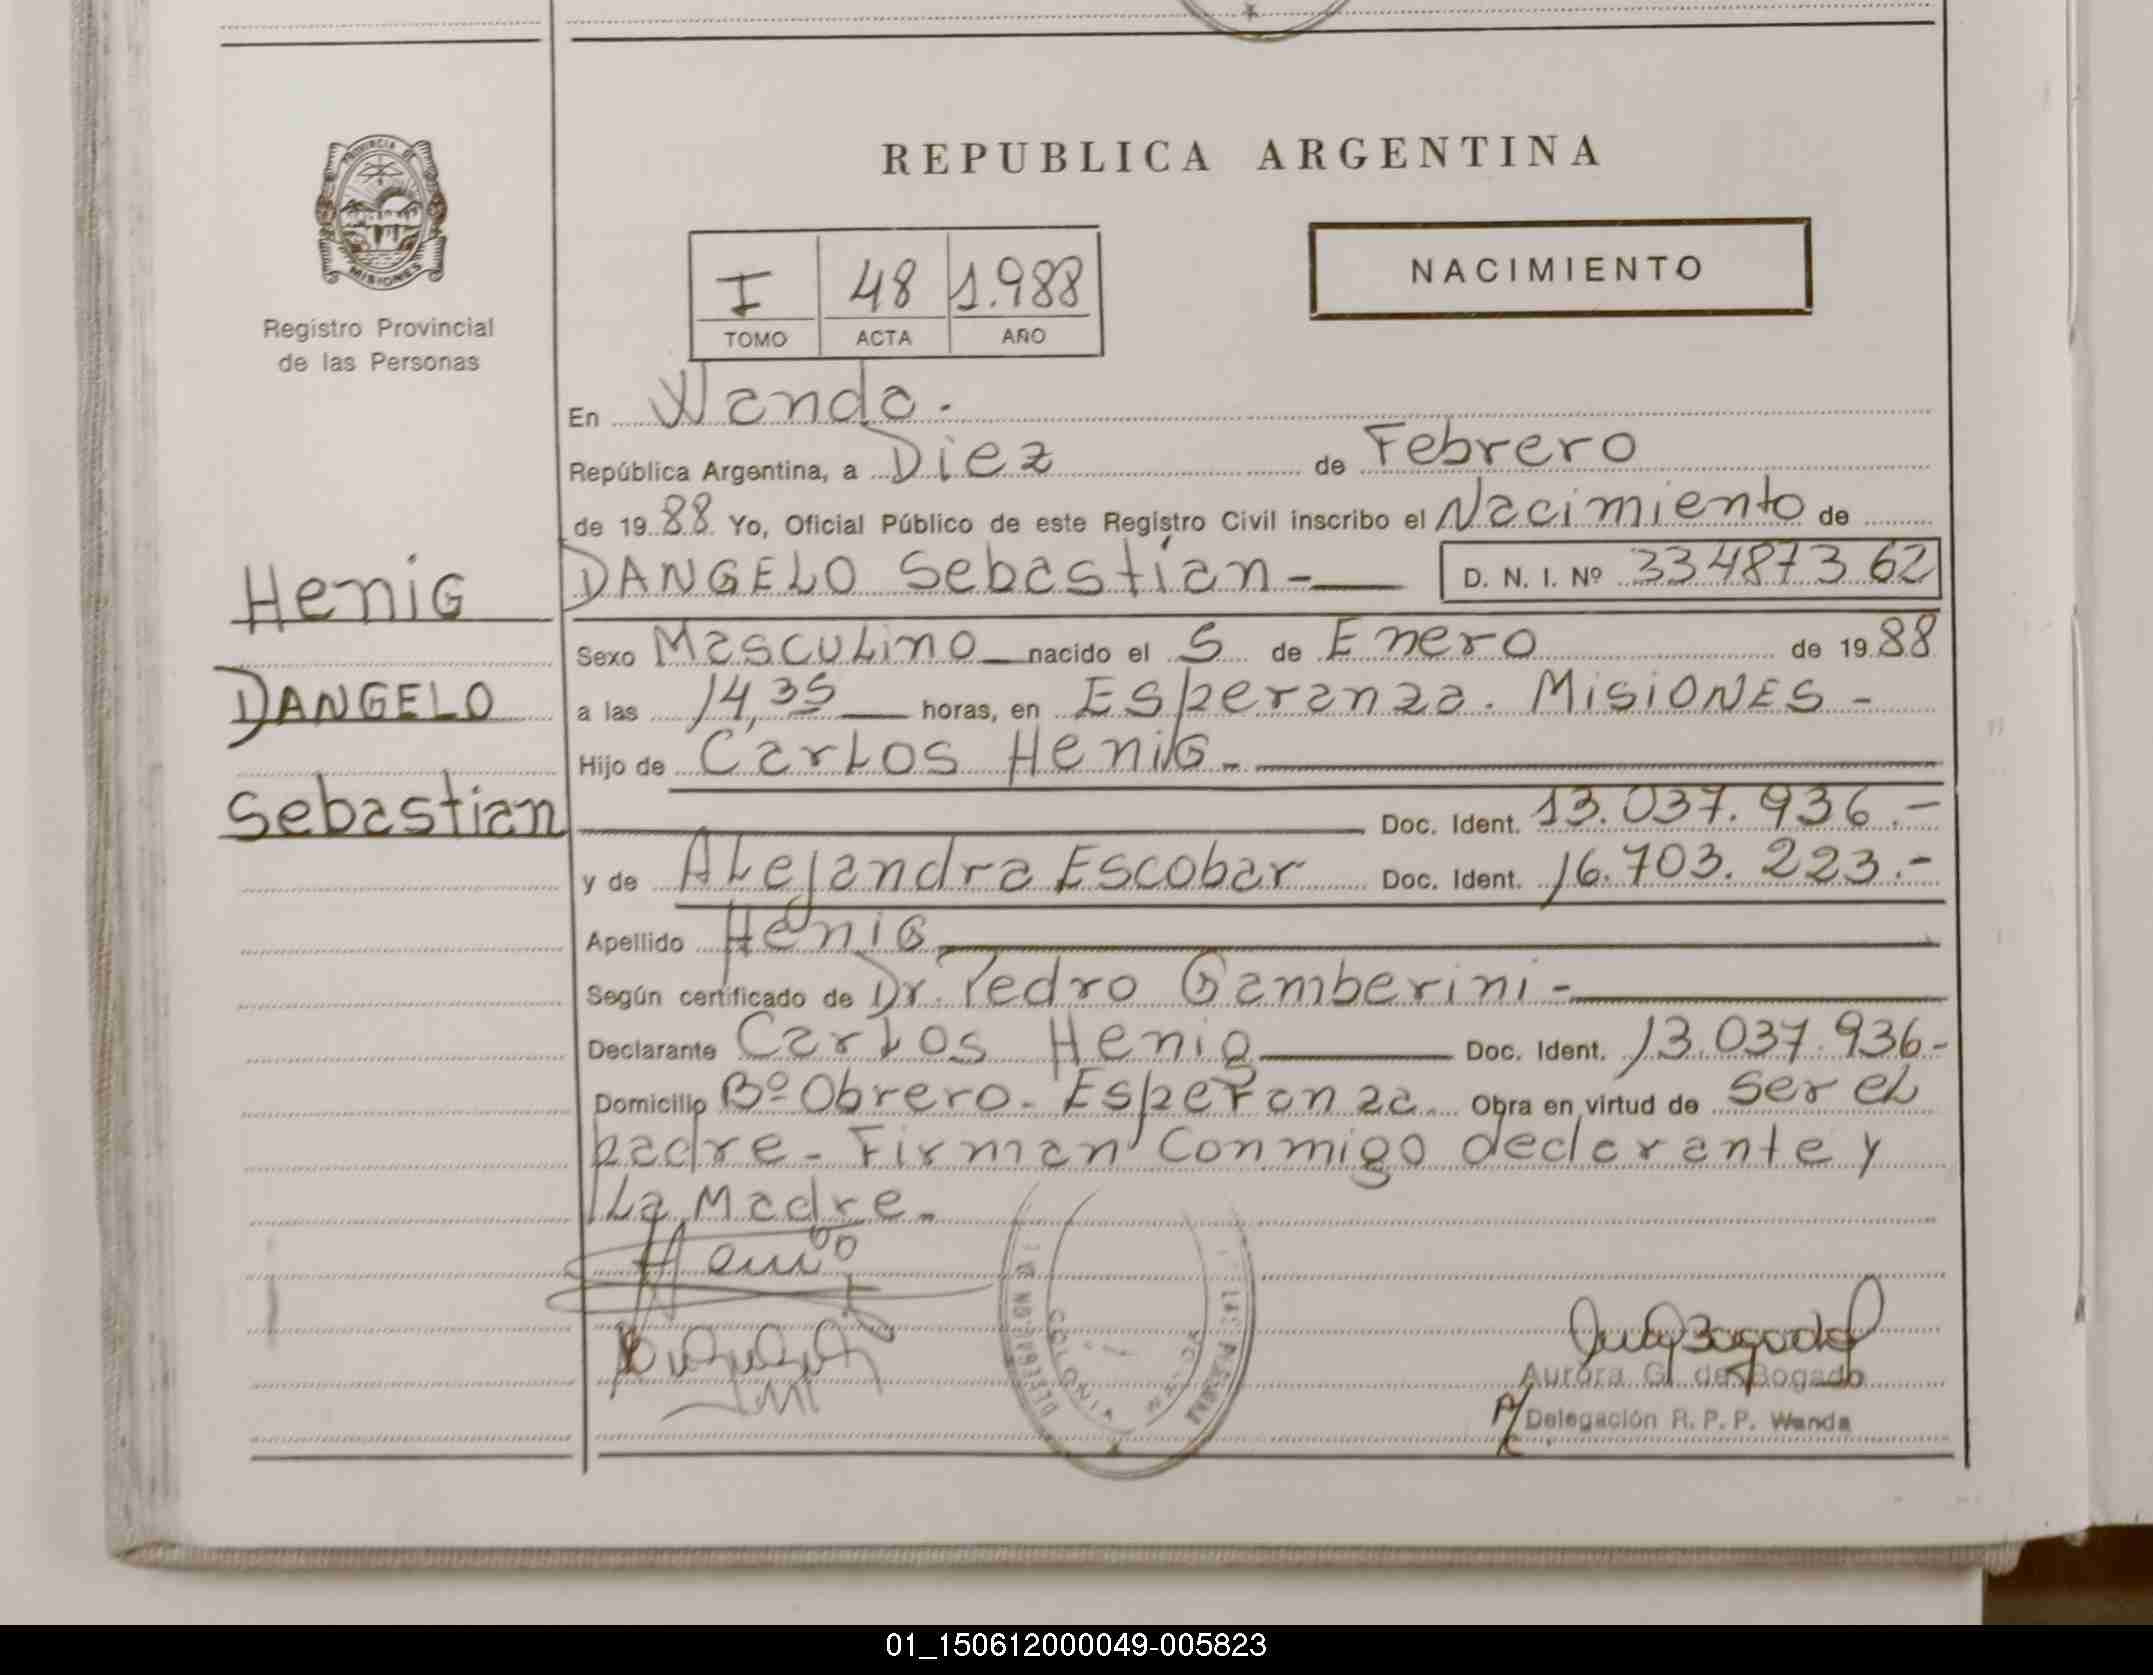 REPUBLICA ARGENTINA
PROVINCIA DE
MISIONES
Registro Provincial
de las Personas
NACIMIENTO
I 48 1.988
TOMO ACTA AÑO
En Wanda.
República Argentina, a Diez de Febrero
de 1988 Yo, Oficial Público de este Registro Civil inscribo el Nacimiento de
Henig
DANGELO
Sebastian
DANGELO Sebastían - D. N. I. Nº 33487362
Sexo Masculino nacido el 5 de Enero de 1988
a las 14,35 horas, en Esperanza. MISIONES -
Hijo de Carlos Henig -
Doc. Ident. 13.037.936.-
y de Alejandra Escobar Doc. Ident. 16.703.223.-
Apellido Henig
Según certificado de Dr. Pedro Gamberini -
Declarante Carlos Henig Doc. Ident. 13.037.936-
Domicilio Bº Obrero - Esperanza Obra en virtud de ser el
padre - Firman conmigo declarante y
La Madre -
Henig
Aurora G. de Bogado
P/ Delegación R. P. P. Wanda
01_150612000049-005823